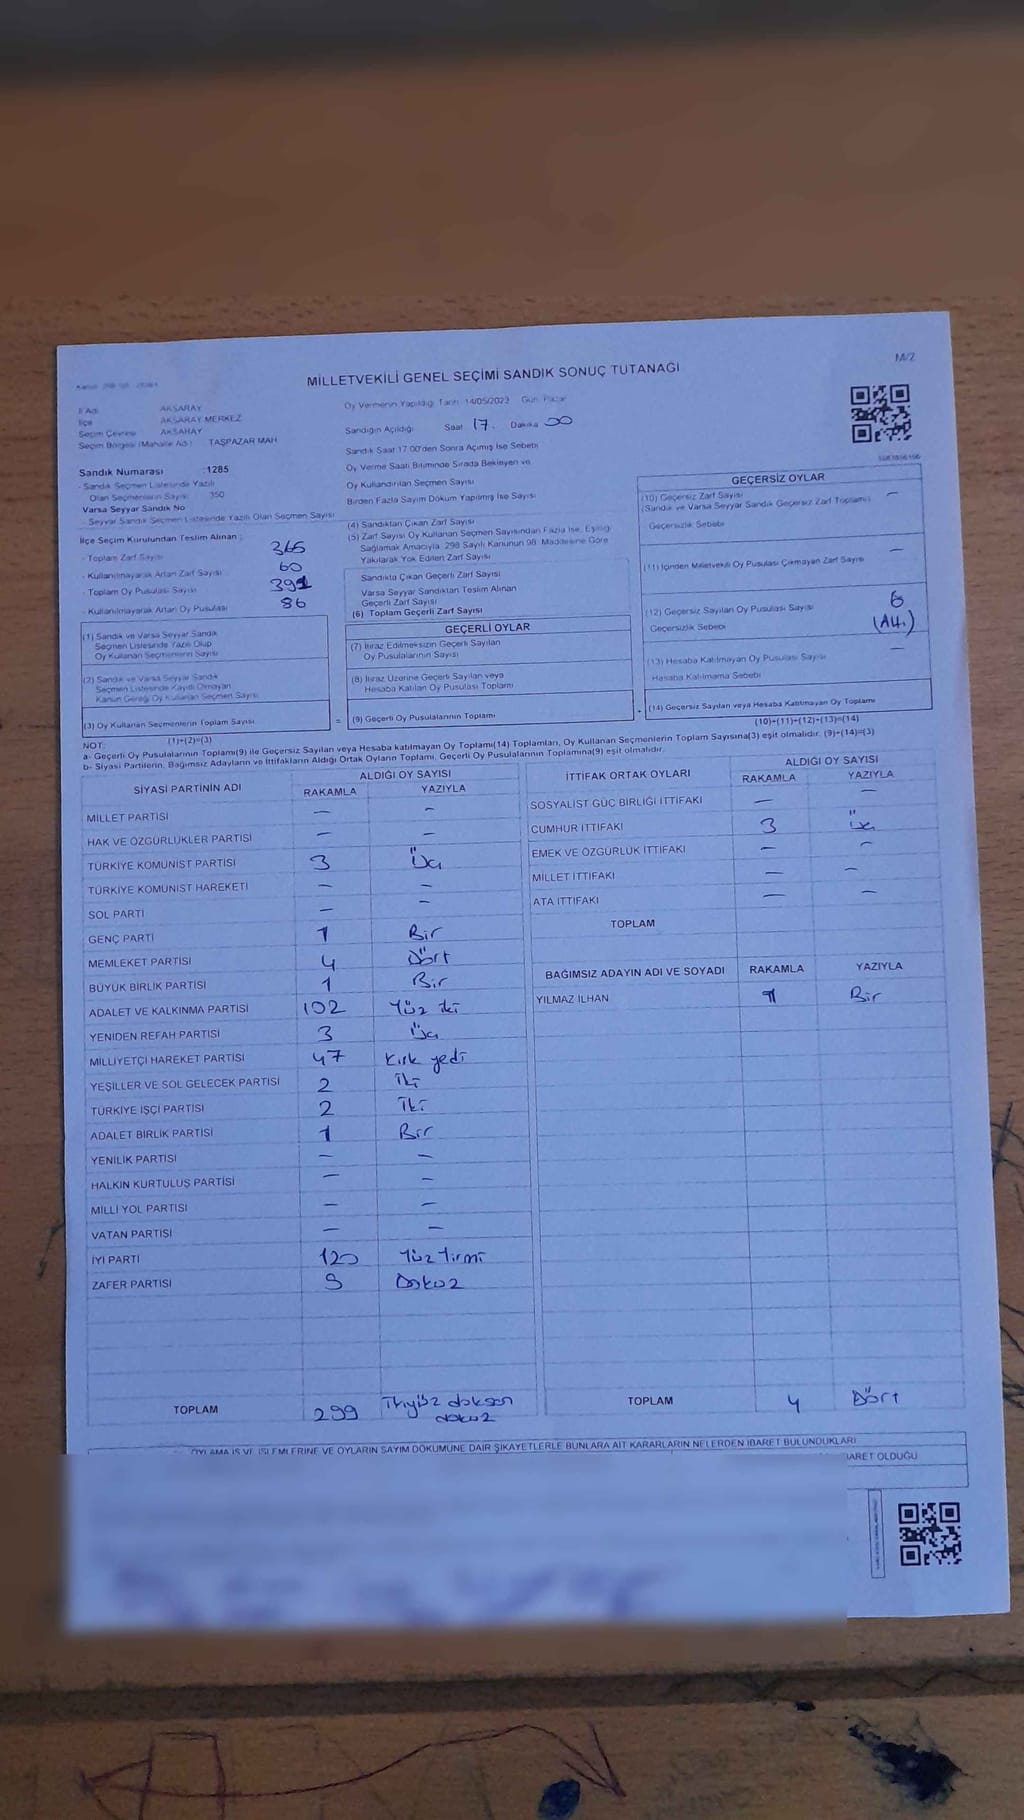 M/2
MİLLETVEKİLİ GENEL SEÇİMİ SANDIK SONUÇ TUTANAĞI
İl Adı AKSARAY
İlçe AKSARAY MERKEZ
Seçim Çevresi AKSARAY
Seçim Bölgesi (Mahalle Adı) TAŞPAZAR MAH
Sandık Numarası :1285
- Sandık Seçmen Listesinde Yazılı
Olan Seçmenlerin Sayısı 350
Varsa Seyyar Sandık No
- Seyyar Sandık Seçmen Listesinde Yazılı Olan Seçmen Sayısı
İlçe Seçim Kurulundan Teslim Alınan :
- Toplam Zarf Sayısı 365
- Kullanılmayarak Artan Zarf Sayısı 60
- Toplam Oy Pusulası Sayısı 391
- Kullanılmayarak Artan Oy Pusulası 86
(1) Sandık ve Varsa Seyyar Sandık
Seçmen Listesinde Yazılı Olup
Oy Kullanan Seçmenlerin Sayısı
(2) Sandık ve Varsa Seyyar Sandık
Seçmen Listesinde Kayıtlı Olmayan
Kanun Gereği Oy Kullanan Seçmen Sayısı
(3) Oy Kullanan Seçmenlerin Toplam Sayısı
(1)+(2)=(3)
Oy Vermenin Yapıldığı Tarih 14/05/2023 Gün Pazar
Sandığın Açıldığı Saat 17. Dakika 00
Sandık Saat 17:00'den Sonra Açılmış İse Sebebi
Oy Verme Saati Bitiminde Sırada Bekleyen ve
Oy Kullandırılan Seçmen Sayısı
Birden Fazla Sayım Döküm Yapılmış İse Sayısı
(4) Sandıktan Çıkan Zarf Sayısı
(5) Zarf Sayısı Oy Kullanan Seçmen Sayısından Fazla İse, Eşitliği
Sağlamak Amacıyla, 298 Sayılı Kanunun 98. Maddesine Göre
Yakılarak Yok Edilen Zarf Sayısı
Sandıkta Çıkan Geçerli Zarf Sayısı
Varsa Seyyar Sandıktan Teslim Alınan
Geçerli Zarf Sayısı
(6) Toplam Geçerli Zarf Sayısı
GEÇERLİ OYLAR
(7) İtiraz Edilmeksizin Geçerli Sayılan
Oy Pusulalarının Sayısı
(8) İtiraz Üzerine Geçerli Sayılan veya
Hesaba Katılan Oy Pusulası Toplamı
= (9) Geçerli Oy Pusulalarının Toplamı +
GEÇERSİZ OYLAR
(10) Geçersiz Zarf Sayısı —
(Sandık ve Varsa Seyyar Sandık Geçersiz Zarf Toplamı)
Geçersizlik Sebebi
(11) İçinden Milletvekili Oy Pusulası Çıkmayan Zarf Sayısı —
(12) Geçersiz Sayılan Oy Pusulası Sayısı 6
Geçersizlik Sebebi (Altı)
(13) Hesaba Katılmayan Oy Pusulası Sayısı —
Hesaba Katılmama Sebebi
(14) Geçersiz Sayılan veya Hesaba Katılmayan Oy Toplamı
(10)+(11)+(12)+(13)=(14)
NOT:
a- Geçerli Oy Pusulalarının Toplamı(9) ile Geçersiz Sayılan veya Hesaba katılmayan Oy Toplamı(14) Toplamları, Oy Kullanan Seçmenlerin Toplam Sayısına(3) eşit olmalıdır. (9)+(14)=(3)
b- Siyasi Partilerin, Bağımsız Adayların ve İttifakların Aldığı Ortak Oyların Toplamı, Geçerli Oy Pusulalarının Toplamına(9) eşit olmalıdır.
SİYASİ PARTİNİN ADI ALDIĞI OY SAYISI
RAKAMLA YAZIYLA
MİLLET PARTİSİ — —
HAK VE ÖZGÜRLÜKLER PARTİSİ — —
TÜRKİYE KOMÜNİST PARTİSİ 3 Üç
TÜRKİYE KOMÜNİST HAREKETİ — —
SOL PARTİ — —
GENÇ PARTİ 1 Bir
MEMLEKET PARTİSİ 4 Dört
BÜYÜK BİRLİK PARTİSİ 1 Bir
ADALET VE KALKINMA PARTİSİ 102 Yüz iki
YENİDEN REFAH PARTİSİ 3 Üç
MİLLİYETÇİ HAREKET PARTİSİ 47 Kırk yedi
YEŞİLLER VE SOL GELECEK PARTİSİ 2 İki
TÜRKİYE İŞÇİ PARTİSİ 2 İki
ADALET BİRLİK PARTİSİ 1 Bir
YENİLİK PARTİSİ — —
HALKIN KURTULUŞ PARTİSİ — —
MİLLİ YOL PARTİSİ — —
VATAN PARTİSİ — —
İYİ PARTİ 120 Yüz Yirmi
ZAFER PARTİSİ 9 Dokuz
TOPLAM 299 İkiyüz doksan
dokuz
İTTİFAK ORTAK OYLARI ALDIĞI OY SAYISI
RAKAMLA YAZIYLA
SOSYALİST GÜÇ BİRLİĞİ İTTİFAKI — —
CUMHUR İTTİFAKI 3 Üç
EMEK VE ÖZGÜRLÜK İTTİFAKI — —
MİLLET İTTİFAKI — —
ATA İTTİFAKI — —
TOPLAM
BAĞIMSIZ ADAYIN ADI VE SOYADI RAKAMLA YAZIYLA
YILMAZ İLHAN 1 Bir
TOPLAM 4 Dört
OYLAMA İŞ VE İŞLEMLERİNE VE OYLARIN SAYIM DÖKÜMÜNE DAİR ŞİKAYETLERLE BUNLARA AİT KARARLARIN NELERDEN İBARET BULUNDUKLARI
İBARET OLDUĞU